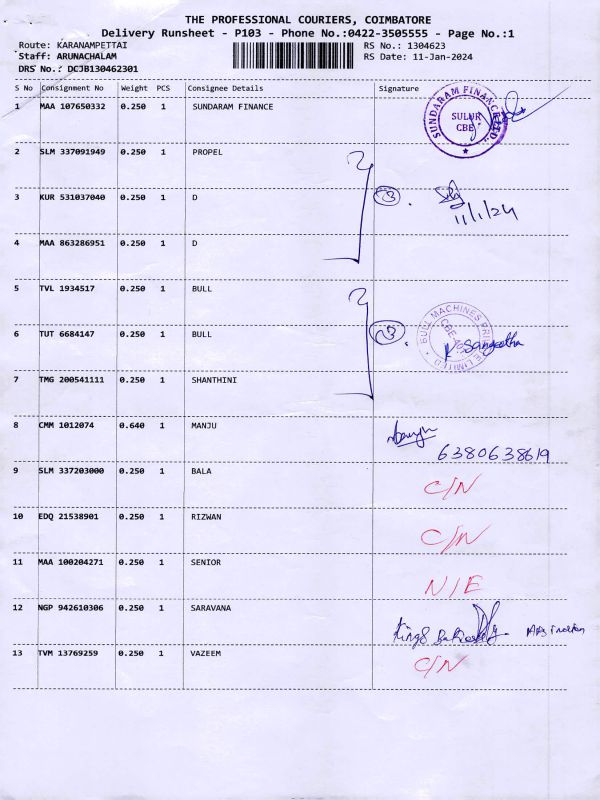 THE PROFESSIONAL COURIERS, COIMBATORE
Delivery Runsheet - P103 - Phone No.:0422-3505555 - Page No.:1
Route: KARANAMPETTAI
RS No.: 1304623
Staff: ARUNACHALAM
RS Date: 11-Jan-2024
DRS No.: DCJB130462301
S No Consignment No Weight PCS Consignee Details Signature
1 MAA 107650332 0.250 1 SUNDARAM FINANCE
SUNDARAM FINANCE LTD.
SULUR
CBE
2 SLM 337091949 0.250 1 PROPEL
3 KUR 531037040 0.250 1 D 3.
11/1/24
4 MAA 863286951 0.250 1 D
5 TVL 1934517 0.250 1 BULL
6 TUT 6684147 0.250 1 BULL 3.
BULL MACHINES PRIVATE LIMITED
K. Sangeetha
7 TMG 200541111 0.250 1 SHANTHINI
8 CMM 1012074 0.640 1 MANJU
6380638619
9 SLM 337203000 0.250 1 BALA C/N
10 EDQ 21538901 0.250 1 RIZWAN C/N
11 MAA 100204271 0.250 1 SENIOR N/E
12 NGP 942610306 0.250 1 SARAVANA
13 TVM 13769259 0.250 1 VAZEEM C/N